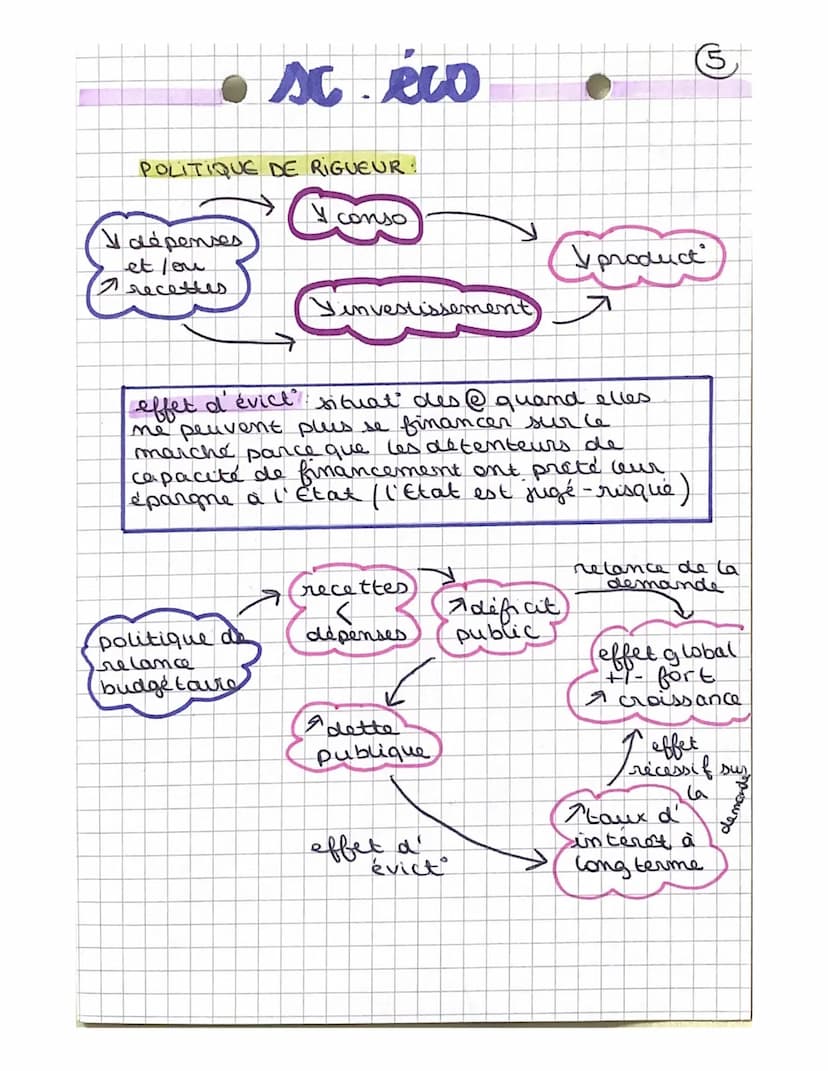 5
SC. éco
POLITIQUE DE RIGUEUR :
↘ dépenses
et / ou
↗ recettes
↘ conso
↘ investissement
↘ product°
effet d'évict° : situat° des @ quand elles
ne peuvent plus se financer sur le
marché parce que les détenteurs de
capacité de financement ont prêté leur
épargne à l'État (l'Etat est jugé - risqué)
politique de
relance
budgétaire
recettes
<
dépenses
↗ déficit
public
relance de la
demande
effet global
+/- fort
↗ croissance
↗ dette
publique
effet
récessif sur
la
demande
effet d'
évict°
↗ taux d'
intérêt à
long terme